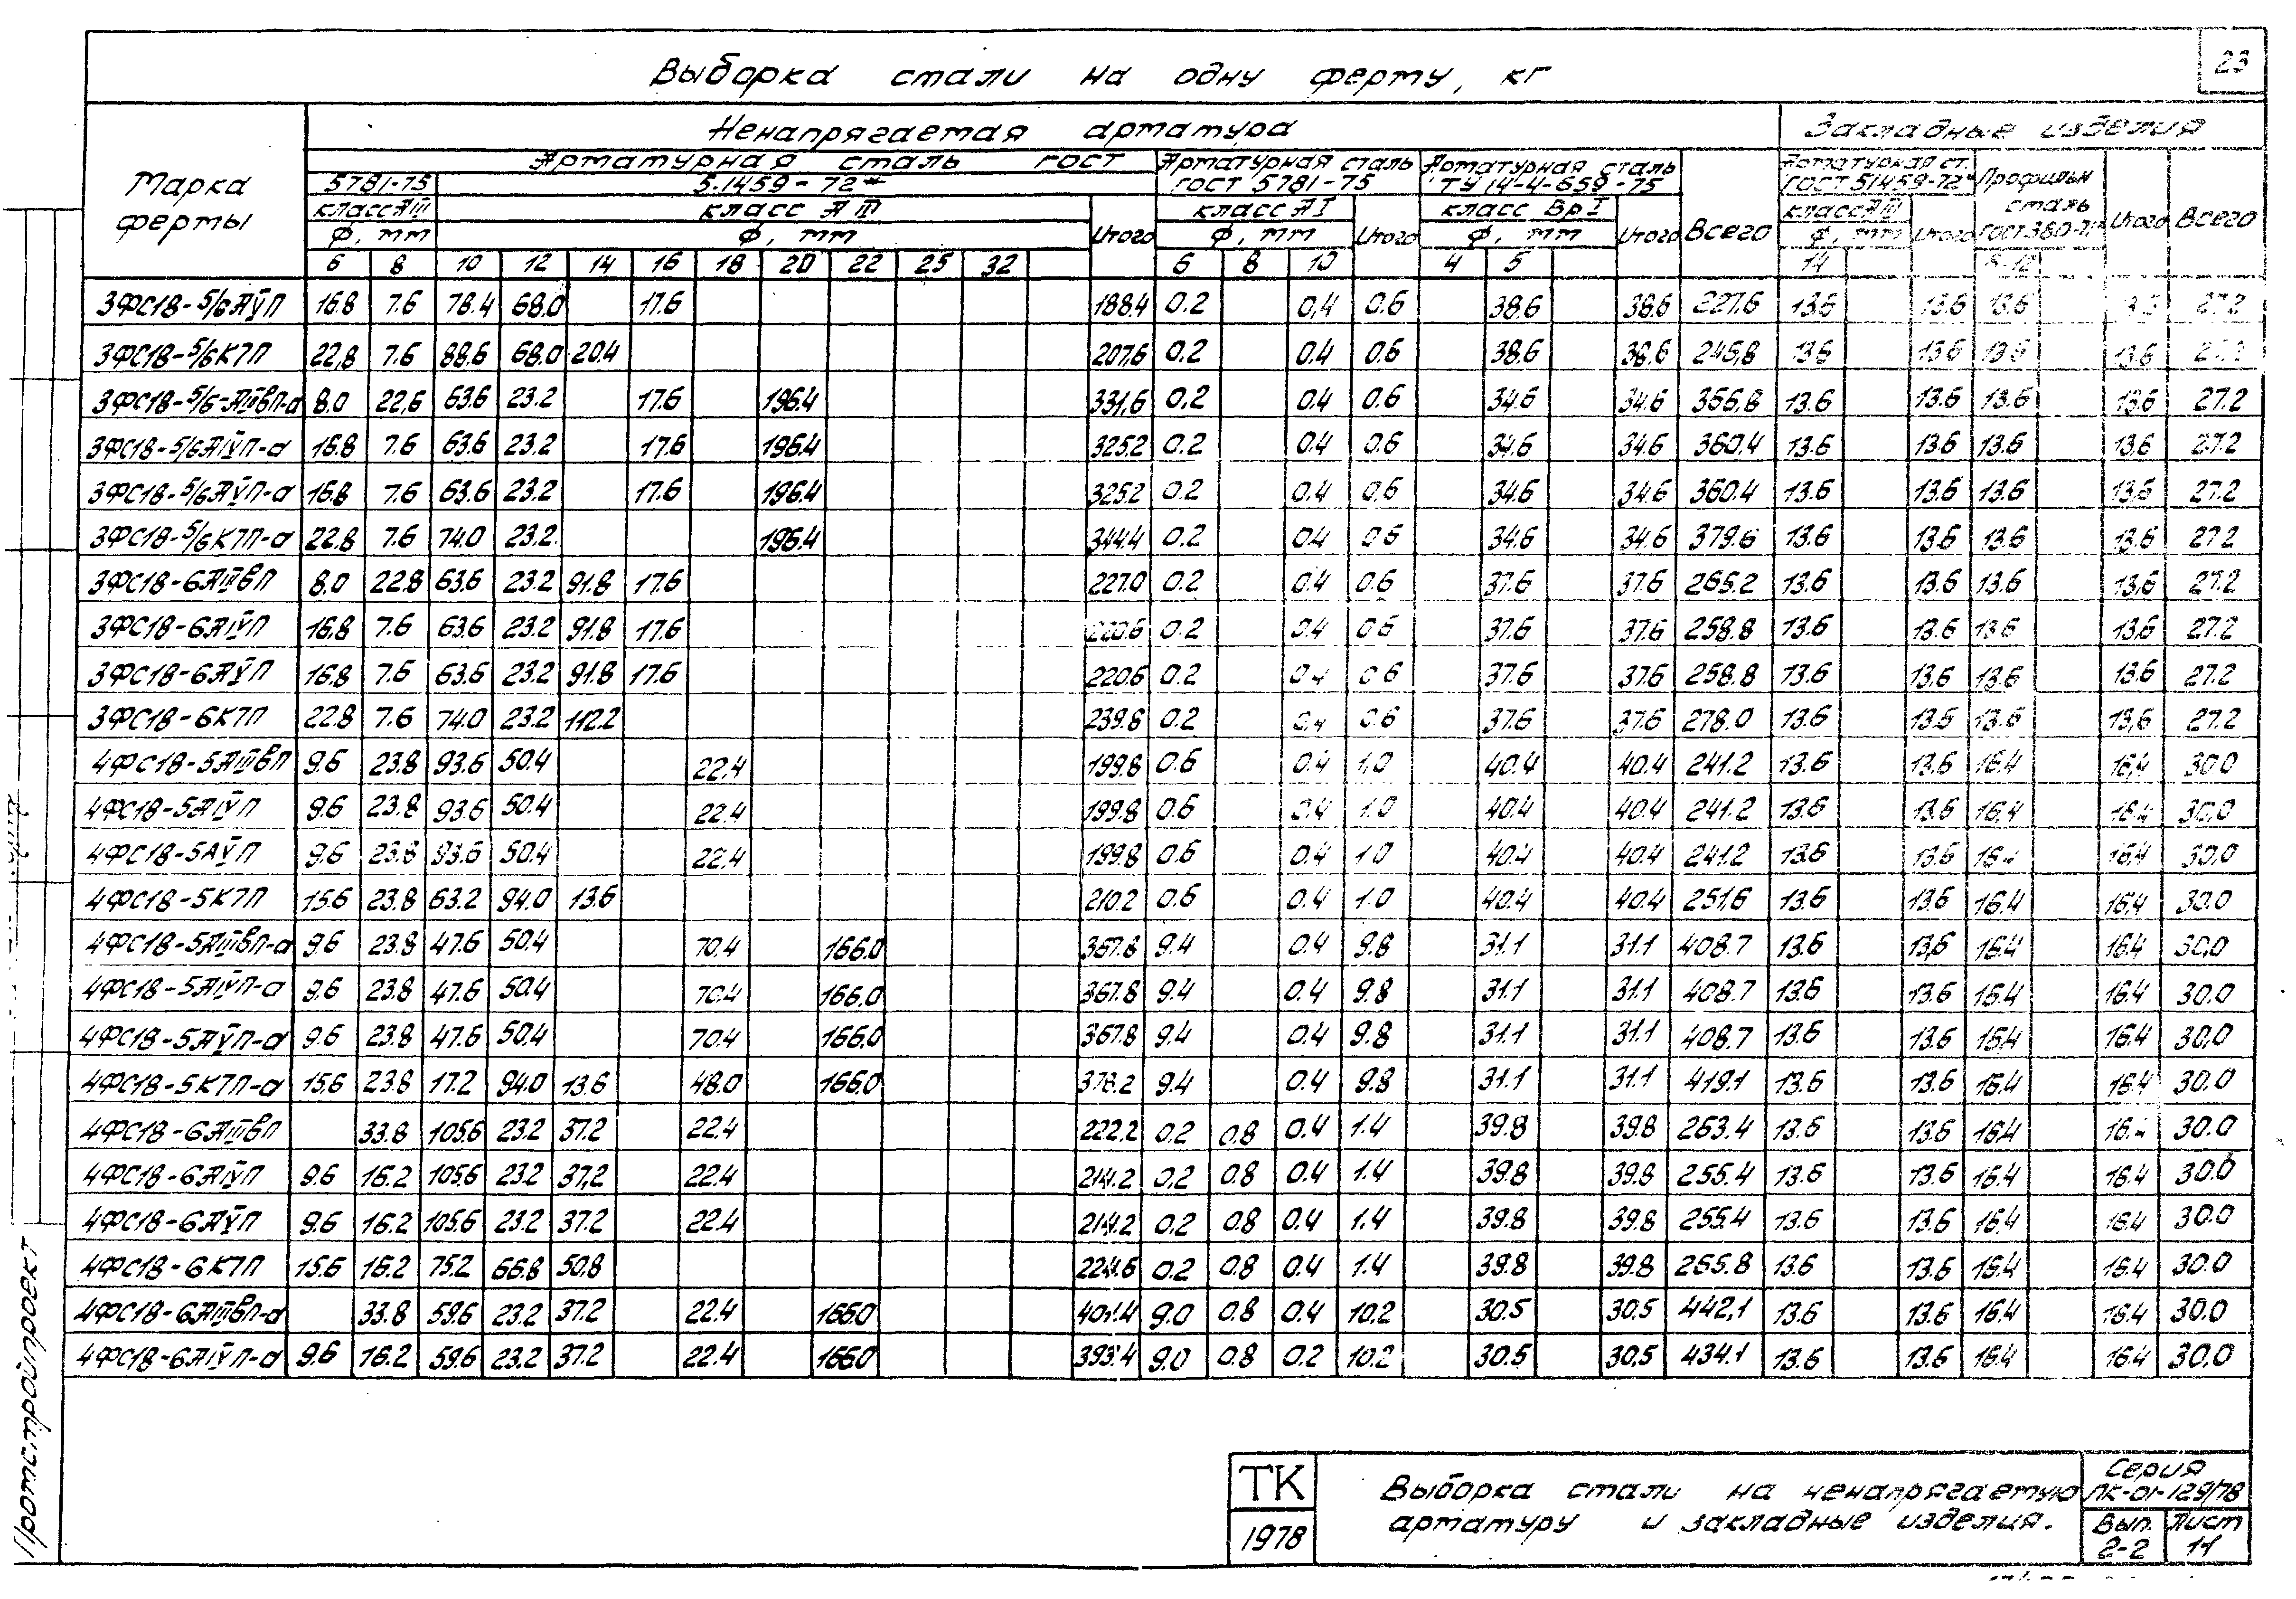 23
Выборка стали на одну ферму, кг
Марка фермы
Ненапрягаемая арматура
Закладные изделия
Арматурная сталь ГОСТ
Арматурная сталь ГОСТ 5781-75
Арматурная сталь ТУ 14-4-659-75
Всего
Арматурная ст. ГОСТ 51459-72*
Профильн сталь ГОСТ 380-71*
Итого
Всего
5781-75 5.1459-72*
класс АIII класс АIII Итого класс АI Итого класс ВрI Итого класс АIII Итого
Ф, мм Ф, мм Ф, мм Ф, мм Ф, мм
6 8 10 12 14 16 18 20 22 25 32 6 8 10 4 5 14
3ФС18-5/6АVП 16.8 7.6 78.4 68.0 17.6 188.4 0.2 0,4 0.6 38.6 38.6 227.6 13.6 13.6 13.6 27.2
3ФС18-5/6К7П 22,8 7.6 88.6 68.0 20.4 207.6 0.2 0.4 0.6 38.6 38.6 246,8 13.6 13.6 13.6 13.6
3ФС18-5/6-АIIIвП-а 8.0 22,6 63.6 23.2 17.6 196.4 331,6 0.2 0.4 0.6 34.6 34.6 366.8 13.6 13.6 13.6 13.6 27.2
3ФС18-5/6АIVП-а 16.8 7.6 63.6 23.2 17.6 196.4 325.2 0.2 0.4 0.6 34.6 34.6 360.4 13.6 13.6 13.6 13,6 27.2
3ФС18-5/6АVП-а 16.8 7.6 63.6 23.2 17.6 196.4 325.2 0.2 0.4 0.6 34.6 34.6 360.4 13.6 13.6 13.6 13,6 27.2
3ФС18-5/6К7П-а 22.8 7.6 74.0 23.2 196.4 344.4 0.2 0.4 0.6 34.6 34.6 379.6 13.6 13.6 13.6 13.6 27.2
3ФС18-6АIIIвП 8.0 22.8 63.6 23.2 91.8 17.6 227.0 0.2 0.4 0.6 37.6 37.6 265.2 13.6 13.6 13.6 13,6 27.2
3ФС18-6АIVП 16,8 7.6 63.6 23.2 91.8 17.6 220.6 0.2 0.4 0.6 37.6 37.6 258.8 13.6 13.6 13.6 13,6 27.2
3ФС18-6АVП 16.8 7.6 63.6 23.2 91.8 17.6 220.6 0.2 0.4 0.6 37.6 37.6 258.8 13.6 13.6 13.6 13.6 27.2
3ФС18-6К7П 22.8 7.6 74.0 23.2 112.2 239.8 0.2 0.4 0.6 37.6 37.6 278.0 13.6 13.6 13.6 13,6 27.2
4ФС18-5АIIIвП 9.6 23.8 93.6 50.4 22.4 199.8 0.6 0.4 1.0 40.4 40.4 241.2 13.6 13.6 16.4 16,4 30.0
4ФС18-5АIVП 9.6 23.8 93.6 50.4 22.4 199.8 0.6 0.4 1.0 40.4 40.4 241.2 13.6 13.6 16.4 16.4 30.0
4ФС18-5АVП 9.6 23.8 93.6 50.4 22.4 199.8 0.6 0.4 1.0 40.4 40.4 241.2 13.6 13.6 16.4 16.4 30,0
4ФС18-5К7П 15.6 23.8 63.2 94.0 13.6 210.2 0.6 0.4 1.0 40.4 40.4 251,6 13.6 13.6 16.4 16.4 30.0
4ФС18-5АIIIвП-а 9.6 23.8 47.6 50.4 70.4 166.0 367.8 9.4 0.4 9.8 31.1 31.1 408.7 13.6 13,6 16.4 16.4 30,0
4ФС18-5АIVП-а 9.6 23.8 47.6 50.4 70.4 166.0 367.8 9.4 0.4 9.8 31.1 31.1 408.7 13.6 13.6 16.4 16.4 30.0
4ФС18-5АVП-а 9.6 23.8 47.6 50.4 70.4 166.0 367.8 9.4 0.4 9.8 31.1 31.1 408.7 13.6 13.6 16.4 16.4 30,0
4ФС18-5К7П-а 15.6 23.8 17.2 94.0 13.6 48.0 166.0 378.2 9.4 0.4 9.8 31.1 31.1 419.1 13.6 13.6 16.4 16.4 30.0
4ФС18-6АIIIвП 33.8 105.6 23.2 37.2 22.4 222.2 0.2 0.8 0.4 1.4 39.8 39.8 263.4 13.6 13.6 16.4 16.4 30.0
4ФС18-6АIVП 9.6 16.2 105.6 23.2 37,2 22.4 214.2 0.2 0.8 0.4 1.4 39.8 39.8 255.4 13.6 13.6 16.4 16.4 30.0
4ФС18-6АVП 9.6 16.2 105.6 23.2 37.2 22.4 214.2 0.2 0.8 0.4 1.4 39.8 39.8 255.4 13.6 13.6 16.4 16.4 30.0
4ФС18-6К7П 15.6 16.2 75.2 66.8 50,8 224.6 0.2 0.8 0.4 1.4 39.8 39.8 265.8 13.6 13.6 16.4 16.4 30.0
4ФС18-6АIIIвП-а 33.8 59.6 23.2 37.2 22.4 166.0 401.4 9.0 0.8 0.4 10,2 30.5 30,5 442,1 13.6 13.6 16.4 16.4 30.0
4ФС18-6АIVП-а 9.6 16.2 59.6 23.2 37.2 22.4 166.0 393.4 9.0 0.8 0.2 10.2 30.5 30,5 434.1 13.6 13.6 16.4 16.4 30.0
Промстройпроект
ТК
1978
Выборка стали на ненапрягаемую
арматуру и закладные изделия.
Серия
ПК-01-129/78
Вып. 2-2
Лист 11